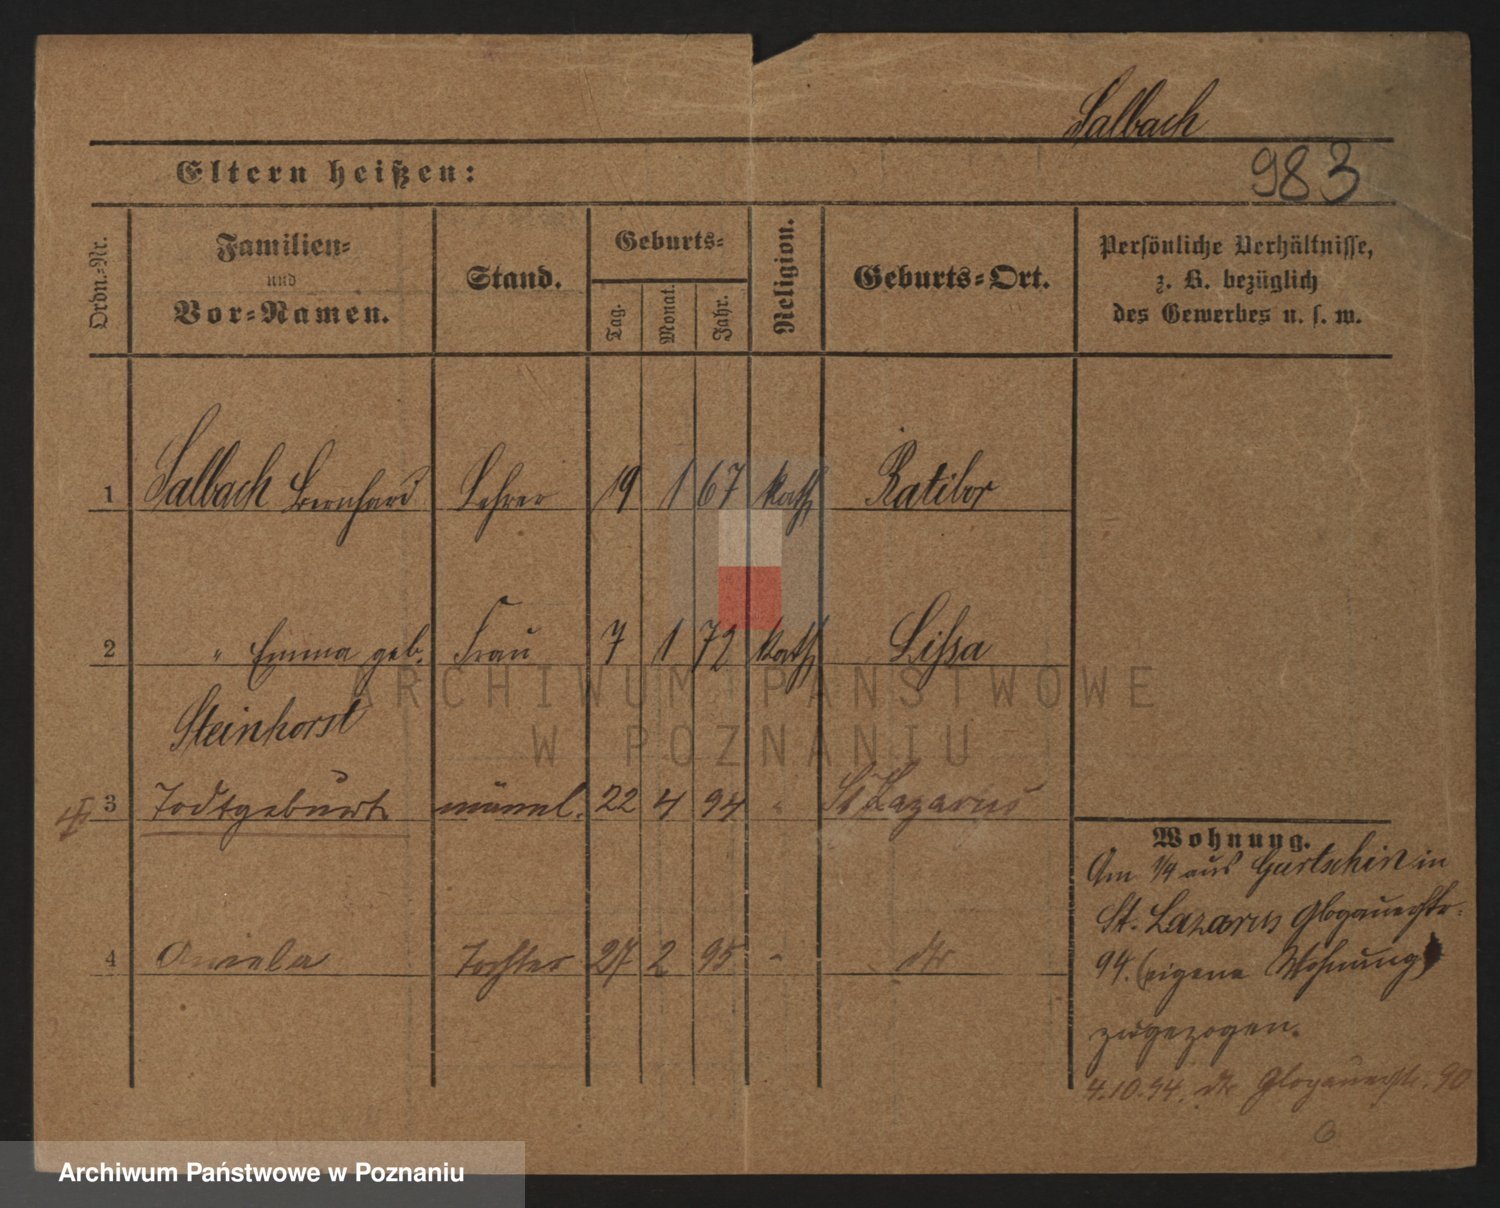 Salbach
983
Eltern heißen:
Ordn.-Nr.
Familien-
und
Vor-Namen.
Stand.
Geburts-
Tag.
Monat.
Jahr.
Religion.
Geburts-Ort.
Persönliche Verhältnisse,
z. B. bezüglich
des Gewerbes u. s. w.
1 Salbach Bernhard Lehrer 19 1 67 kath Ratibor
2 " Emma geb. Frau 7 1 72 kath Lissa
Steinhorst
3 Todtgeburt männl. 22 4 94 " St Lazarus
4 Aniela Tochter 27 2 95 - dto
Wohnung.
Am 1/4 aus in
St. Lazarus Glogauerstr.
94. (eigene Wohnung)
zugezogen.
4.10.94. dto Glogauerstr. 90
6
ARCHIWUM PAŃSTWOWE
W POZNANIU
Archiwum Państwowe w Poznaniu